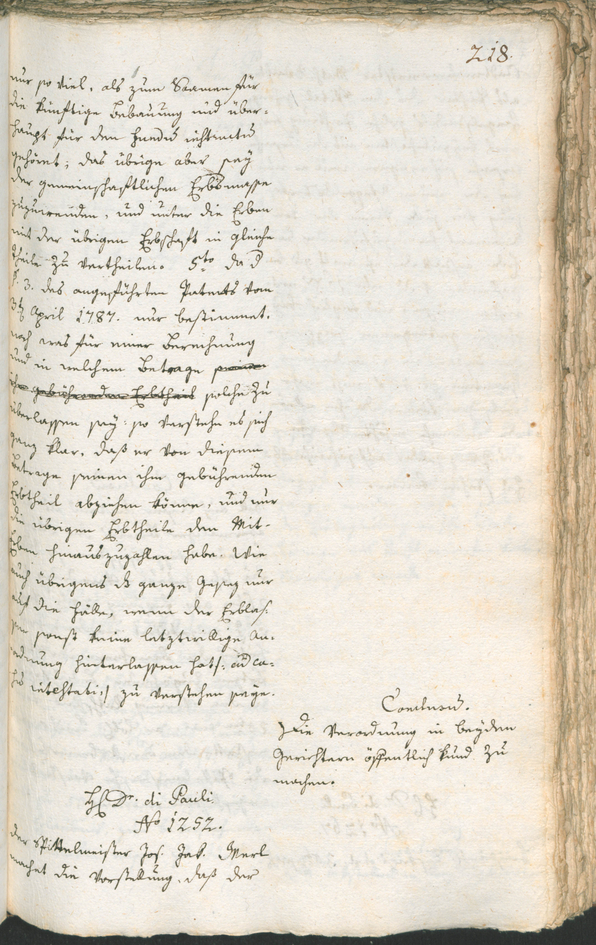 218.
nur so viel, als zum Saamen für
die künftige Bebauung und über-
haupt für den Fundus instructus
gehöret; das übrige aber sey
der gemeinschaftlichen Erbsmasse
zuzuwenden, und unter die Erben
mit der übrigen Erbschaft in gleiche
Theile zu vertheilen. 5to da d
§. 3. des angeführten Patents vom
3t April 1787. nur bestimmet,
nach was für einer Berechnung
und in welchem Betrage
ihm gebührenden Erbtheils solche zu
überlassen sey: so verstehe es sich
ganz klar, daß er von diesem
Betrage seinen ihm gebührenden
Erbtheil abziehen könne, und nur
die übrigen Erbtheile den Mit-
erben hinauszuzahlen habe. Wie
auch übrigens ds ganze Gesez nur
auf die Fälle, wenn der Erblas-
ser sonst keine letztwillige An-
ordnung hinterlassen hat /: ad ca-
sus intestati :/ zu verstehen seye.
Conclusum.
Die Verordnung in beyden
Gerichtern öffentlich kund zu
machen.
H Dr. di Pauli
No 1252.
Der Spittelmeister Jos. Jak. Merl
machet die Vorstellung, daß der